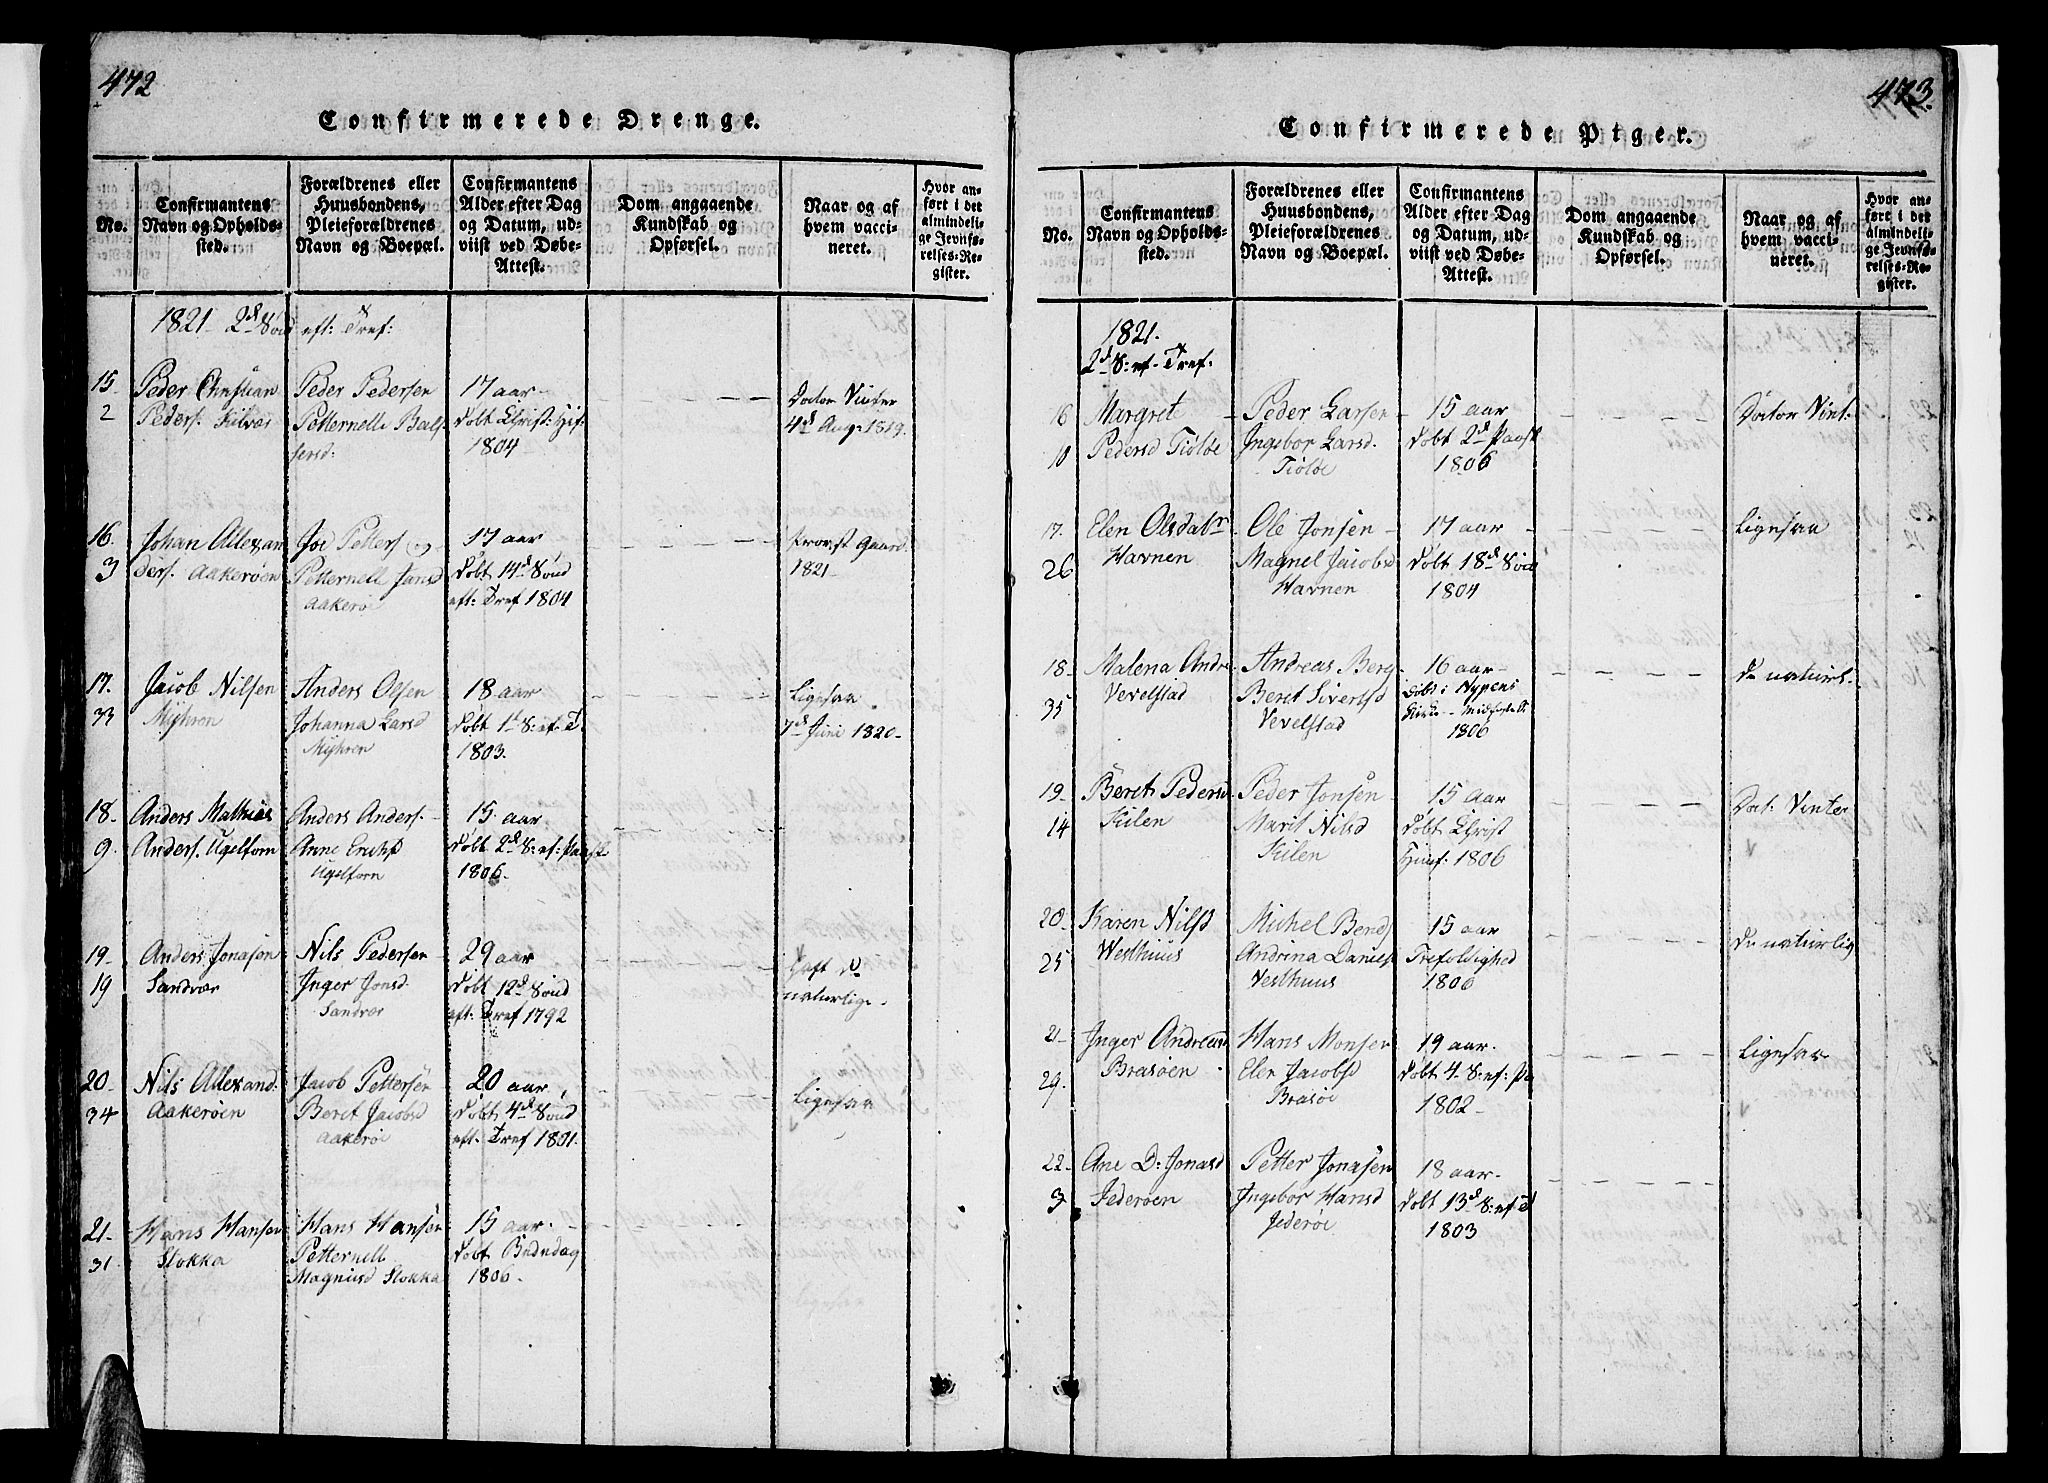 472
Confirmerede Drenge.
No.
Confirmantens
Navn og Opholds-
sted.
Forældrenes eller
Huusbondens,
Pleieforældrenes
Navn og Boepæl.
Confirmantens
Alder efter Dag
og Datum, ud-
viist ved Døbe-
Attest.
Dom angaaende
Kundskab og
Opførsel.
Naar og af
hvem vacci-
neret.
Hvor an-
ført i det
almindeli-
ge Jevnfø-
relses-Re-
gister.
1821 2d Sönd eft: Tref:
15
2
Peder Christian
Peders. Kilvær
Peder Pedersen
Petternelle Balt
sersd:
17 aar
døbt Christ: Hif:
1804
Doctor Vinter
4d Aug: 1819.
16.
3
Johan Allexan
ders. Aakerøen
Joe Petters og
Petternell Jansd
Aakerøe
17 aar
døbt 14d Sönd
eft: Tref 1804
Provst Gaard.
1821
17.
33
Jacob Nilsen
Myhren
Anders Olsen
Johanna Larsd
Myhren
18 aar
døbt 1d S: ef: T.
1803.
Ligesaa
7d Juni 1820
18
9.
Anders Mathias
Anders. Ugelforn
Anders Anders.
Anne Erichsd
Ugelforn
15 aar
døbt 2d S: ef: Paask
1806.
19
19
Anders Jonasøn
Sandvær
Nils Pedersen
Inger Jonsd.
Sandvær
29 aar
døbt 12d Sönd
eft: Tref 1792
Haft de
naturlige
20
34
Nils Allexand.
Aakerøen
Jacob Pettersen
Beret Jacobsd
Aakerøe
20 aar
døbt 4d Sönd
eft: Tref 1801.
Ligesaa
21
31
Hans Hansen
Stokka
Hans Hansøn
Petternell
Magniusd Stokka
15 aar
døbt Bededag
1806.
473.
Confirmerede Piger.
No.
Confirmantens
Navn og Opholds-
sted.
Forældrenes eller
Huusbondens,
Pleieforældrenes
Navn og Boepæl.
Confirmantens
Alder efter Dag
og Datum, ud-
viist ved Døbe-
Attest.
Dom angaaende
Kundskab og
Opførsel.
Naar og af
hvem vacci-
neret.
Hvor an-
ført i det
almindeli-
ge Jevnfø-
relses-Re-
gister.
1821.
2d S: ef. Tref:
16
10
Margret
Pedersd Tiølde
Peder Larsen
Ingebor Larsd.
Tiølde
15 aar
døbt 2d Paask
1806
Doctor Vint:
17.
26
Elen Olsdat
Havnen
Ole Jonsen
Magnel Jacobsd
Havnen
17 aar
døbt 18d Sönd
1804
Ligesaa
18.
35
Malena Andre
Vevelstad
Andreas Berg
Beret Sivertsd
Vevelstad
16 aar
døbt i Nypens
Kirke
1806
De naturl.
19
14
Beret Pedersd
Kilen
Peder Jonsen
Marit Nilsd
Kilen
15 aar
døbt Christ
Himf: 1806
Doct: Vinter
20.
25
Karen Nilsd
Westhuus
Michel Bends
Andrina Danielsd
Vesthuus
15 aar
Trefoldighed
1806
De naturlig
21
29.
Inger Andrean
Brasøen
Hans Monsen
Elen Jacobsd
Brasøe
19 aar.
døbt 4 S: ef: Pa
1802
Ligesaa
22
3
Ane D: Jonasd
Jederøen
Petter Jonasen
Ingebor Hansd
Jederøe
18 aar
døbt 13d S: ef T
1803